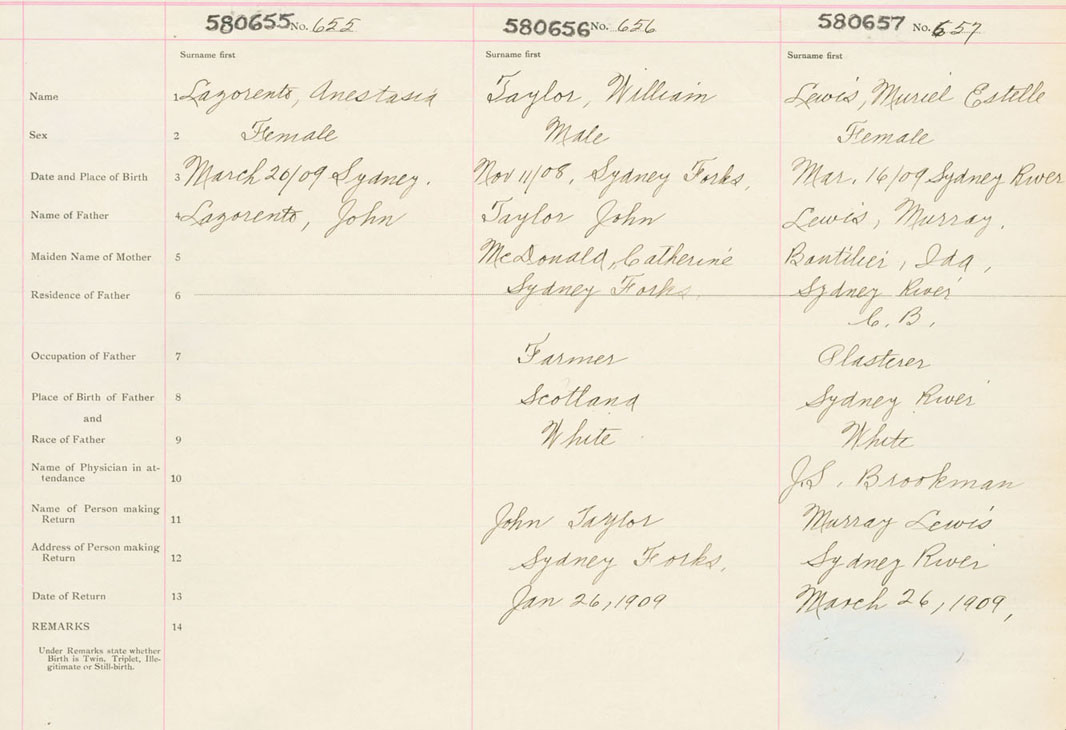 580655 No. 655 580656 No. 656 580657 No. 657
Surname first Surname first Surname first
Name 1 Lazorento, Anestasia Taylor, William Lewis, Muriel Estelle
Sex 2 Female Male Female
Date and Place of Birth 3 March 20/09 Sydney. Nov 11/08, Sydney Forks, Mar. 16/09 Sydney River
Name of Father 4 Lazorento, John Taylor John Lewis, Murray.
Maiden Name of Mother 5 McDonald, Catherine Boutilier, Ida,
Residence of Father 6 Sydney Forks Sydney River
C. B.
Occupation of Father 7 Farmer Plasterer
Place of Birth of Father 8 Scotland Sydney River
and
Race of Father 9 White White
Name of Physician in at-
tendance 10 J.S. Brookman
Name of Person making
Return 11 John Taylor Murray Lewis
Address of Person making
Return 12 Sydney Forks, Sydney River
Date of Return 13 Jan 26, 1909 March 26, 1909,
REMARKS 14
Under Remarks state whether
Birth is Twin, Triplet, Ille-
gitimate or Still-birth.